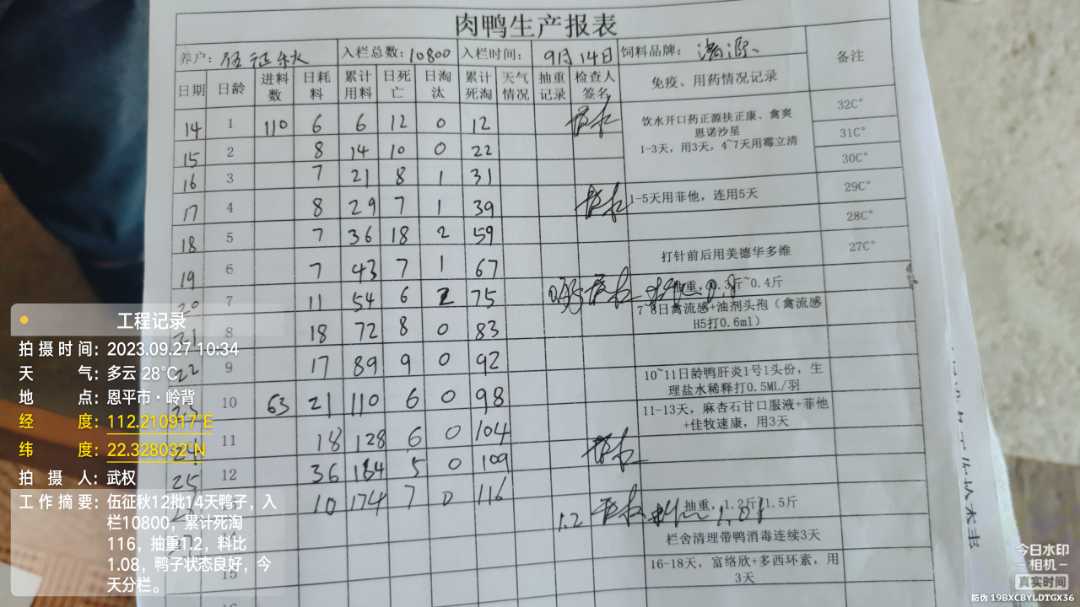 肉鸭生产报表
养户: 伍征秋 入栏总数: 10800 入栏时间: 9月14日 饲料品牌: 备注
日期 日龄 进料数 日耗料 累计用料 日死亡 日淘汰 累计死淘 天气情况 抽重记录 检查人签名 免疫、用药情况记录
14 1 110 6 6 12 0 12 饮水开口药正源扶正康、禽爽 32C°
恩诺沙星
15 2 8 14 10 0 22 1-3天,用3天,4~7天用霉立清 31C°
16 3 7 21 8 1 31 30C°
17 4 8 29 7 1 39 1-5天用菲他,连用5天 29C°
18 5 7 36 18 2 59 28C°
打针前后用美德华多维 27C°
19 6 7 43 7 1 67
20 7 11 54 6 2 75 斤~0.4斤
7-8日禽流感+油剂头孢(禽流感
H5打0.6ml)
8 18 72 8 0 83
22 9 17 89 9 0 92
10~11日龄鸭肝炎1号1头份,生
理盐水稀释打0.5ML/羽
10 63 21 110 6 0 98
11-13天,麻杏石甘口服液+菲他
+佳牧速康,用3天
11 18 128 6 0 104
25 12 36 164 5 0 109
10 174 7 0 116 1.2 抽重,1.2斤/1.5斤
栏舍清理带鸭消毒连续3天
15 16-18天,富络欣+多西环素,用
3天
工程记录
拍摄时间: 2023.09.27 10:34
天气: 多云 28°C
地点: 恩平市·岭背
经度: 112.210917°E
纬度: 22.328032°N
拍摄人: 武权
工作摘要: 伍征秋12批14天鸭子,入
栏10800,累计死淘
116,抽重1.2,料比
1.08,鸭子状态良好,今
天分栏。
今日水印
相机
真实时间
防伪 19BXCBYLDTGX36